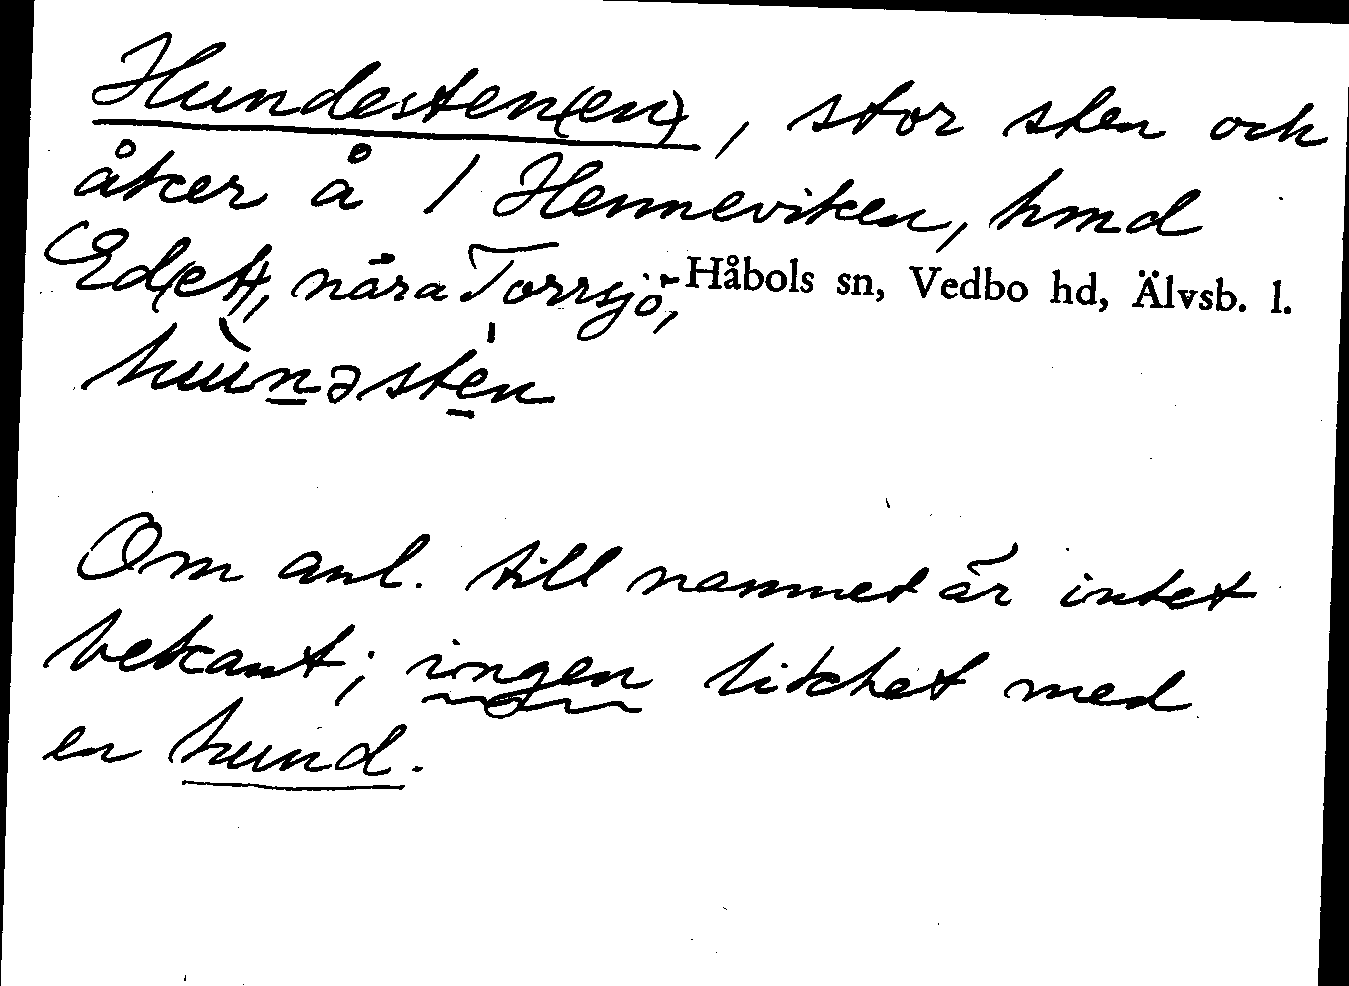 Hundesten(en), stor sten och
åker å 1 Henneviken, hmd
Ed(et), nära Torrsjö, Håbols sn, Vedbo hd, Älvsb. l.
hùnəste̍n
Om anl. till namnet är intet
bekant; ingen likhet med
en hund.